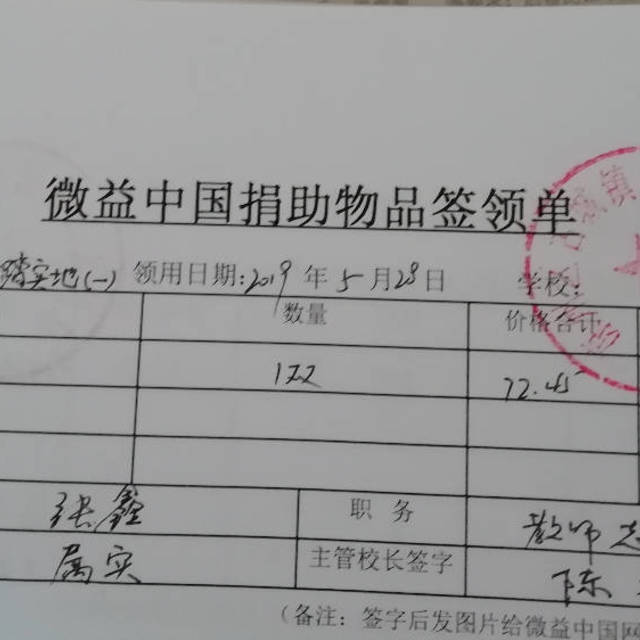 微益中国捐助物品签领单
踏实地(一) 领用日期:2019年5月28日 学校:
数量 价格合计
122 72.45
张鑫 职务 教师
属实 主管校长签字 陈
(备注:签字后发图片给微益中国网